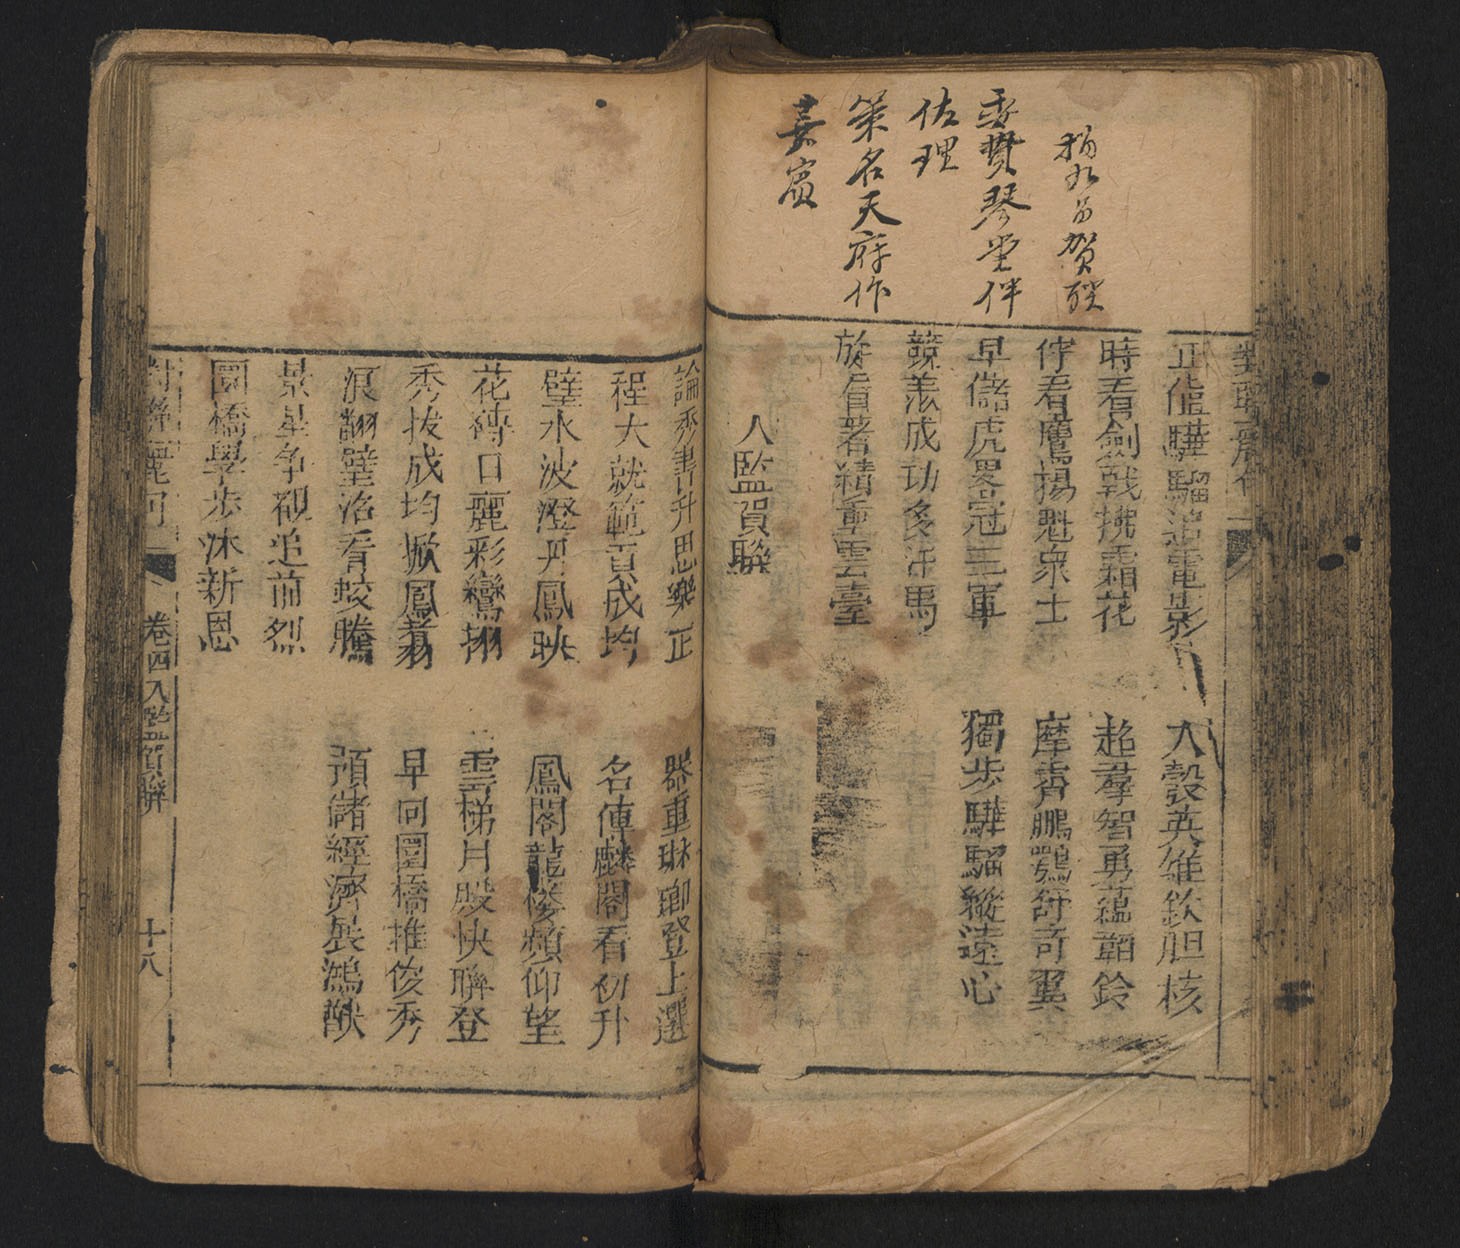 賀聯
委贄琴堂伴
佐理
策名天府作
嘉賓
驊騮追電影
入彀英雄欽胆核
時看劍戟拂霜花
超羣智勇蘊韜鈴
佇看鷹揚魁眾士
摩霄鵬鶚舒奇翼
早儲虎畧冠三軍
獨步驊騮縱遠心
競羨成功多汗馬
旋看著績重雲臺
入監賀聯
論秀書升思樂正
器重琳瑯登上選
程大就範貢成均
名傳麟閣看初升
璧水波澄丹鳳映
鳳閣龍樓頻仰望
花磚日麗彩鸞翔
雲梯月殿快聯登
秀拔成均掀鳳翥
早向圜橋推俊秀
浪翻璧沼看蛟騰
預儲經濟展鴻猷
景星爭覩追前烈
圜橋學步沐新恩
對聯麗句
卷四入監賀聯
十八